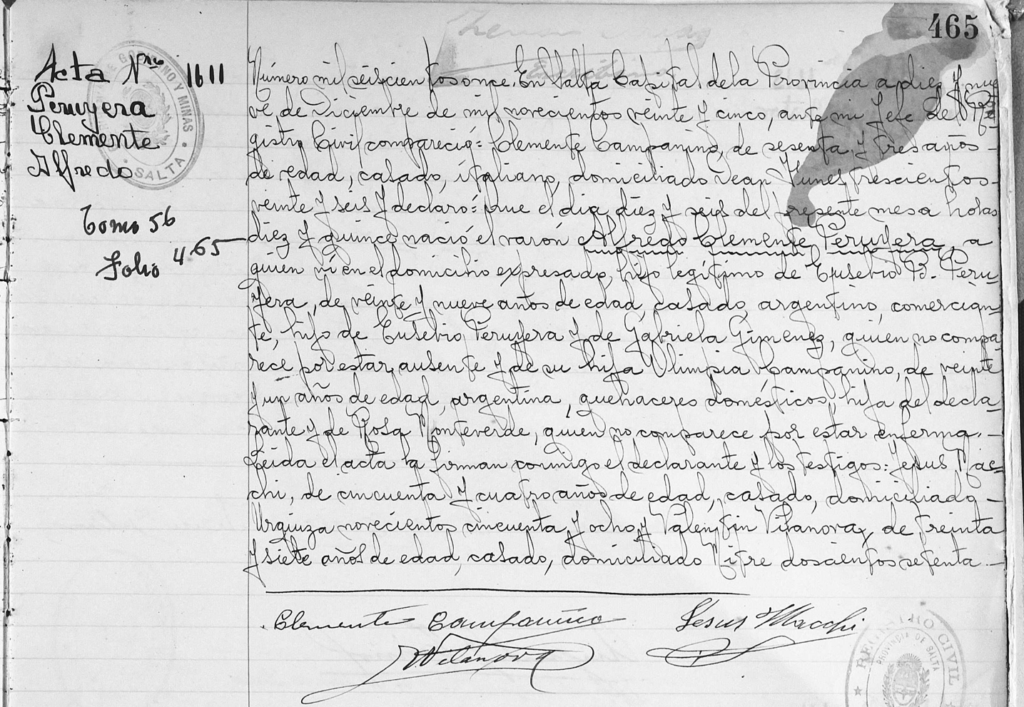 465
Acta Nro 1611
Peruyera
Clemente
Alfredo
Tomo 56
Folio 465
SALTA
Número mil seiscientos once. En Salta Capital de la Provincia a diez y nue
ve de Diciembre de mil novecientos veinte y cinco, ante mi Jefe del Re
gistro Civil compareció: Clemente Campanino, de sesenta y tres años
de edad, casado, italiano, domiciliado Dean Funes trescientos
veinte y seis y declaró: que el dia diez y seis del presente mes a horas
diez y quince nació el varón Alfredo Clemente Peruyera, a
quien vi en el domicilio expresado, hijo legítimo de Eusebio B. Peru
yera, de veinte y nueve años de edad, casado, argentino, comercian
te, hijo de Eusebio Peruyera y de Gabriela Giménez, quien no compa
rece por estar ausente y de su hija Olimpia Campanino, de veinte
y un años de edad, argentina, quehaceres domésticos, hija del decla
rante y de Rosa Monteverde, quien no comparece por estar enferma.-
Leida el acta la firman conmigo el declarante y los testigos: Jesus Mac
chi, de cincuenta y cuatro años de edad, casado, domiciliado-
Urquiza novecientos cincuenta y ocho y Valentin Vilanova, de treinta
y siete años de edad, casado, domiciliado Mitre doscientos setenta.-
Clemente Campanino Jesus Macchi
Vilanova
REGISTRO CIVIL
PROVINCIA DE SALTA